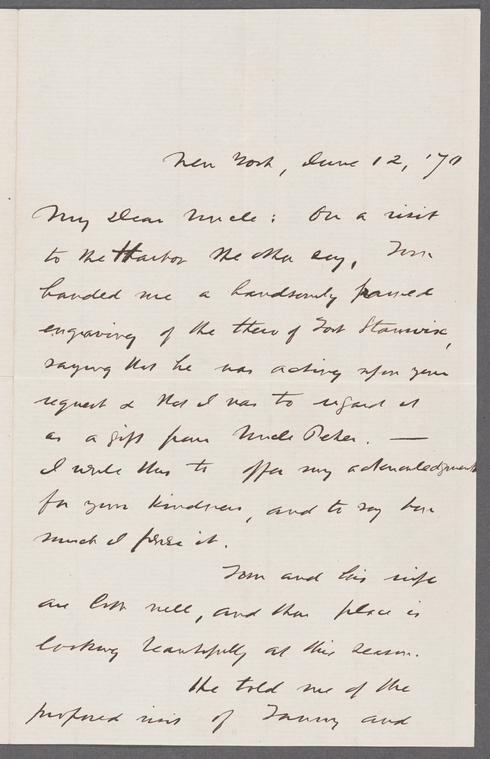 New York, June 12, '70
My Dear Uncle: On a visit
to the Harbor the other day, Tom
handed me a handsomely framed
engraving of the hero of Fort Stanwix,
saying that he was acting upon your
request & that I was to regard it
as a gift from Uncle Peter. —
I write this to offer my acknowledgments
for your kindness, and to say how
much I prize it.
Tom and his wife
are both well, and their place is
looking beautifully at this season.
He told me of the
proposed visit of Fanny and